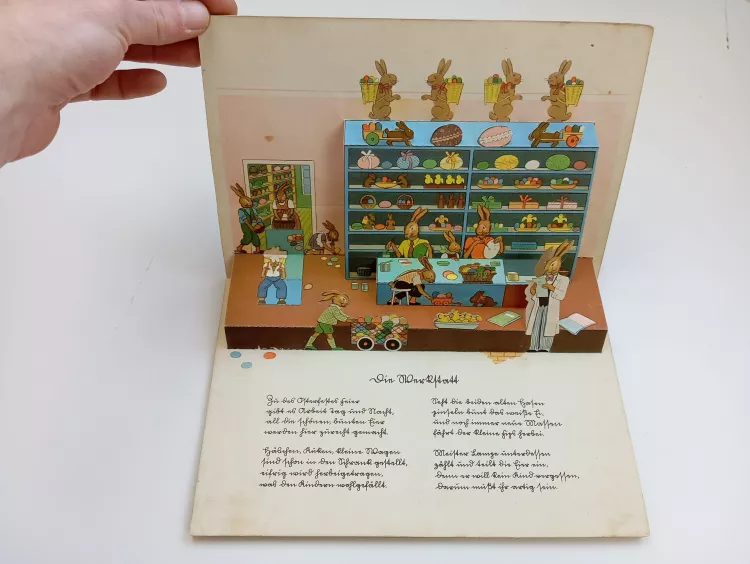 Die Werkstatt
Zu des Osterfestes Feier
gibt es Arbeit Tag und Nacht,
all die schönen, bunten Eier
werden hier zurecht gemacht.
Häschen, Küken, kleine Wagen
sind schon in den Schrank gestellt,
eifrig wird herbeigetragen,
was den Kindern wohlgefällt.
Seht die beiden alten Hasen
pinseln bunt das weiße Ei,
und noch immer neue Massen
fährt der kleine Fips herbei.
Meister Lampe unterdessen
zählt und teilt die Eier ein,
denn er will kein Kind vergessen,
darum müßt ihr artig sein.